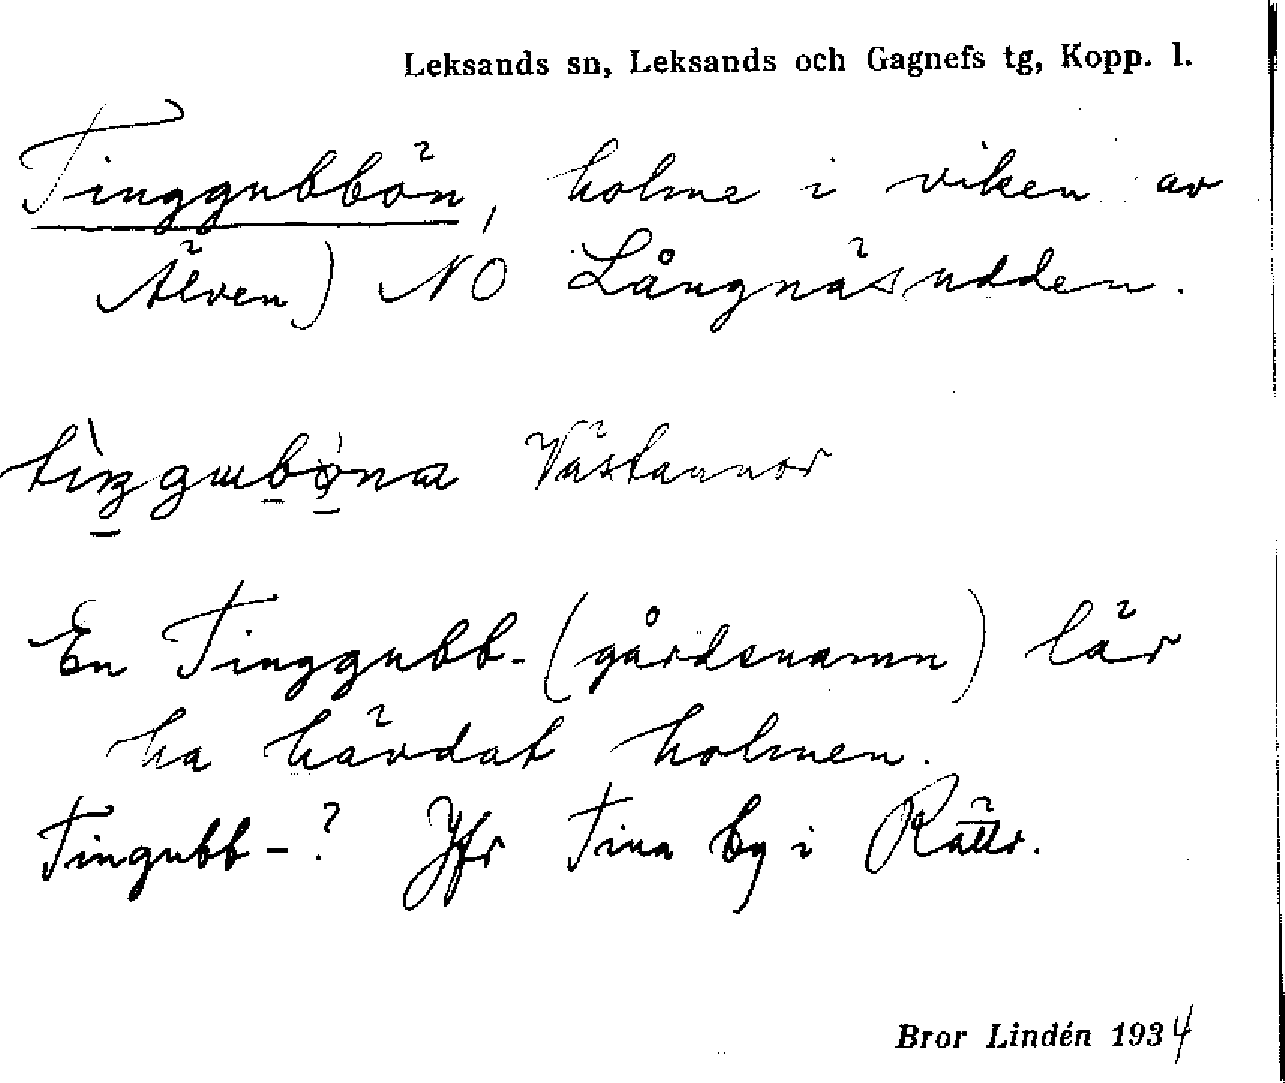 Leksands sn, Leksands och Gagnefs tg, Kopp. l.
Tinggubbön, holme i viken av
Älven) NO Långnäsudden.
Västannor
En Tinggubb- (gårdsnamn) lär
ha hävdat holmen.
Tingubb-? Jfr Tina by i Rättv.
Bror Lindén 1934